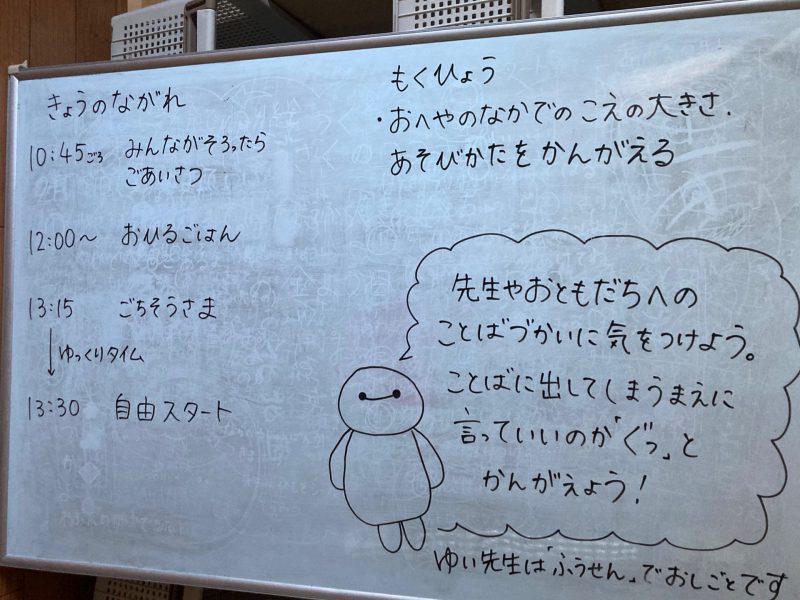 きょうのながれ
10:45ごろ みんながそろったら
ごあいさつ
12:00～ おひるごはん
13:15 ごちそうさま
↓ゆっくりタイム
13:30 自由スタート
もくひょう
・おへやのなかでのこえの大きさ、
あそびかたをかんがえる
先生やおともだちへの
ことばづかいに気をつけよう。
ことばに出してしまうまえに
言っていいのか「ぐっ」と
かんがえよう！
ゆい先生は「ふうせん」でおしごとです